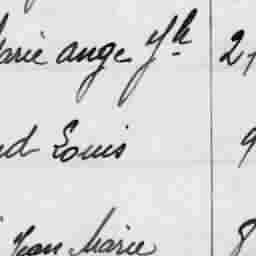 Marie ange fk 27
Louis 9
Jean Marie 8